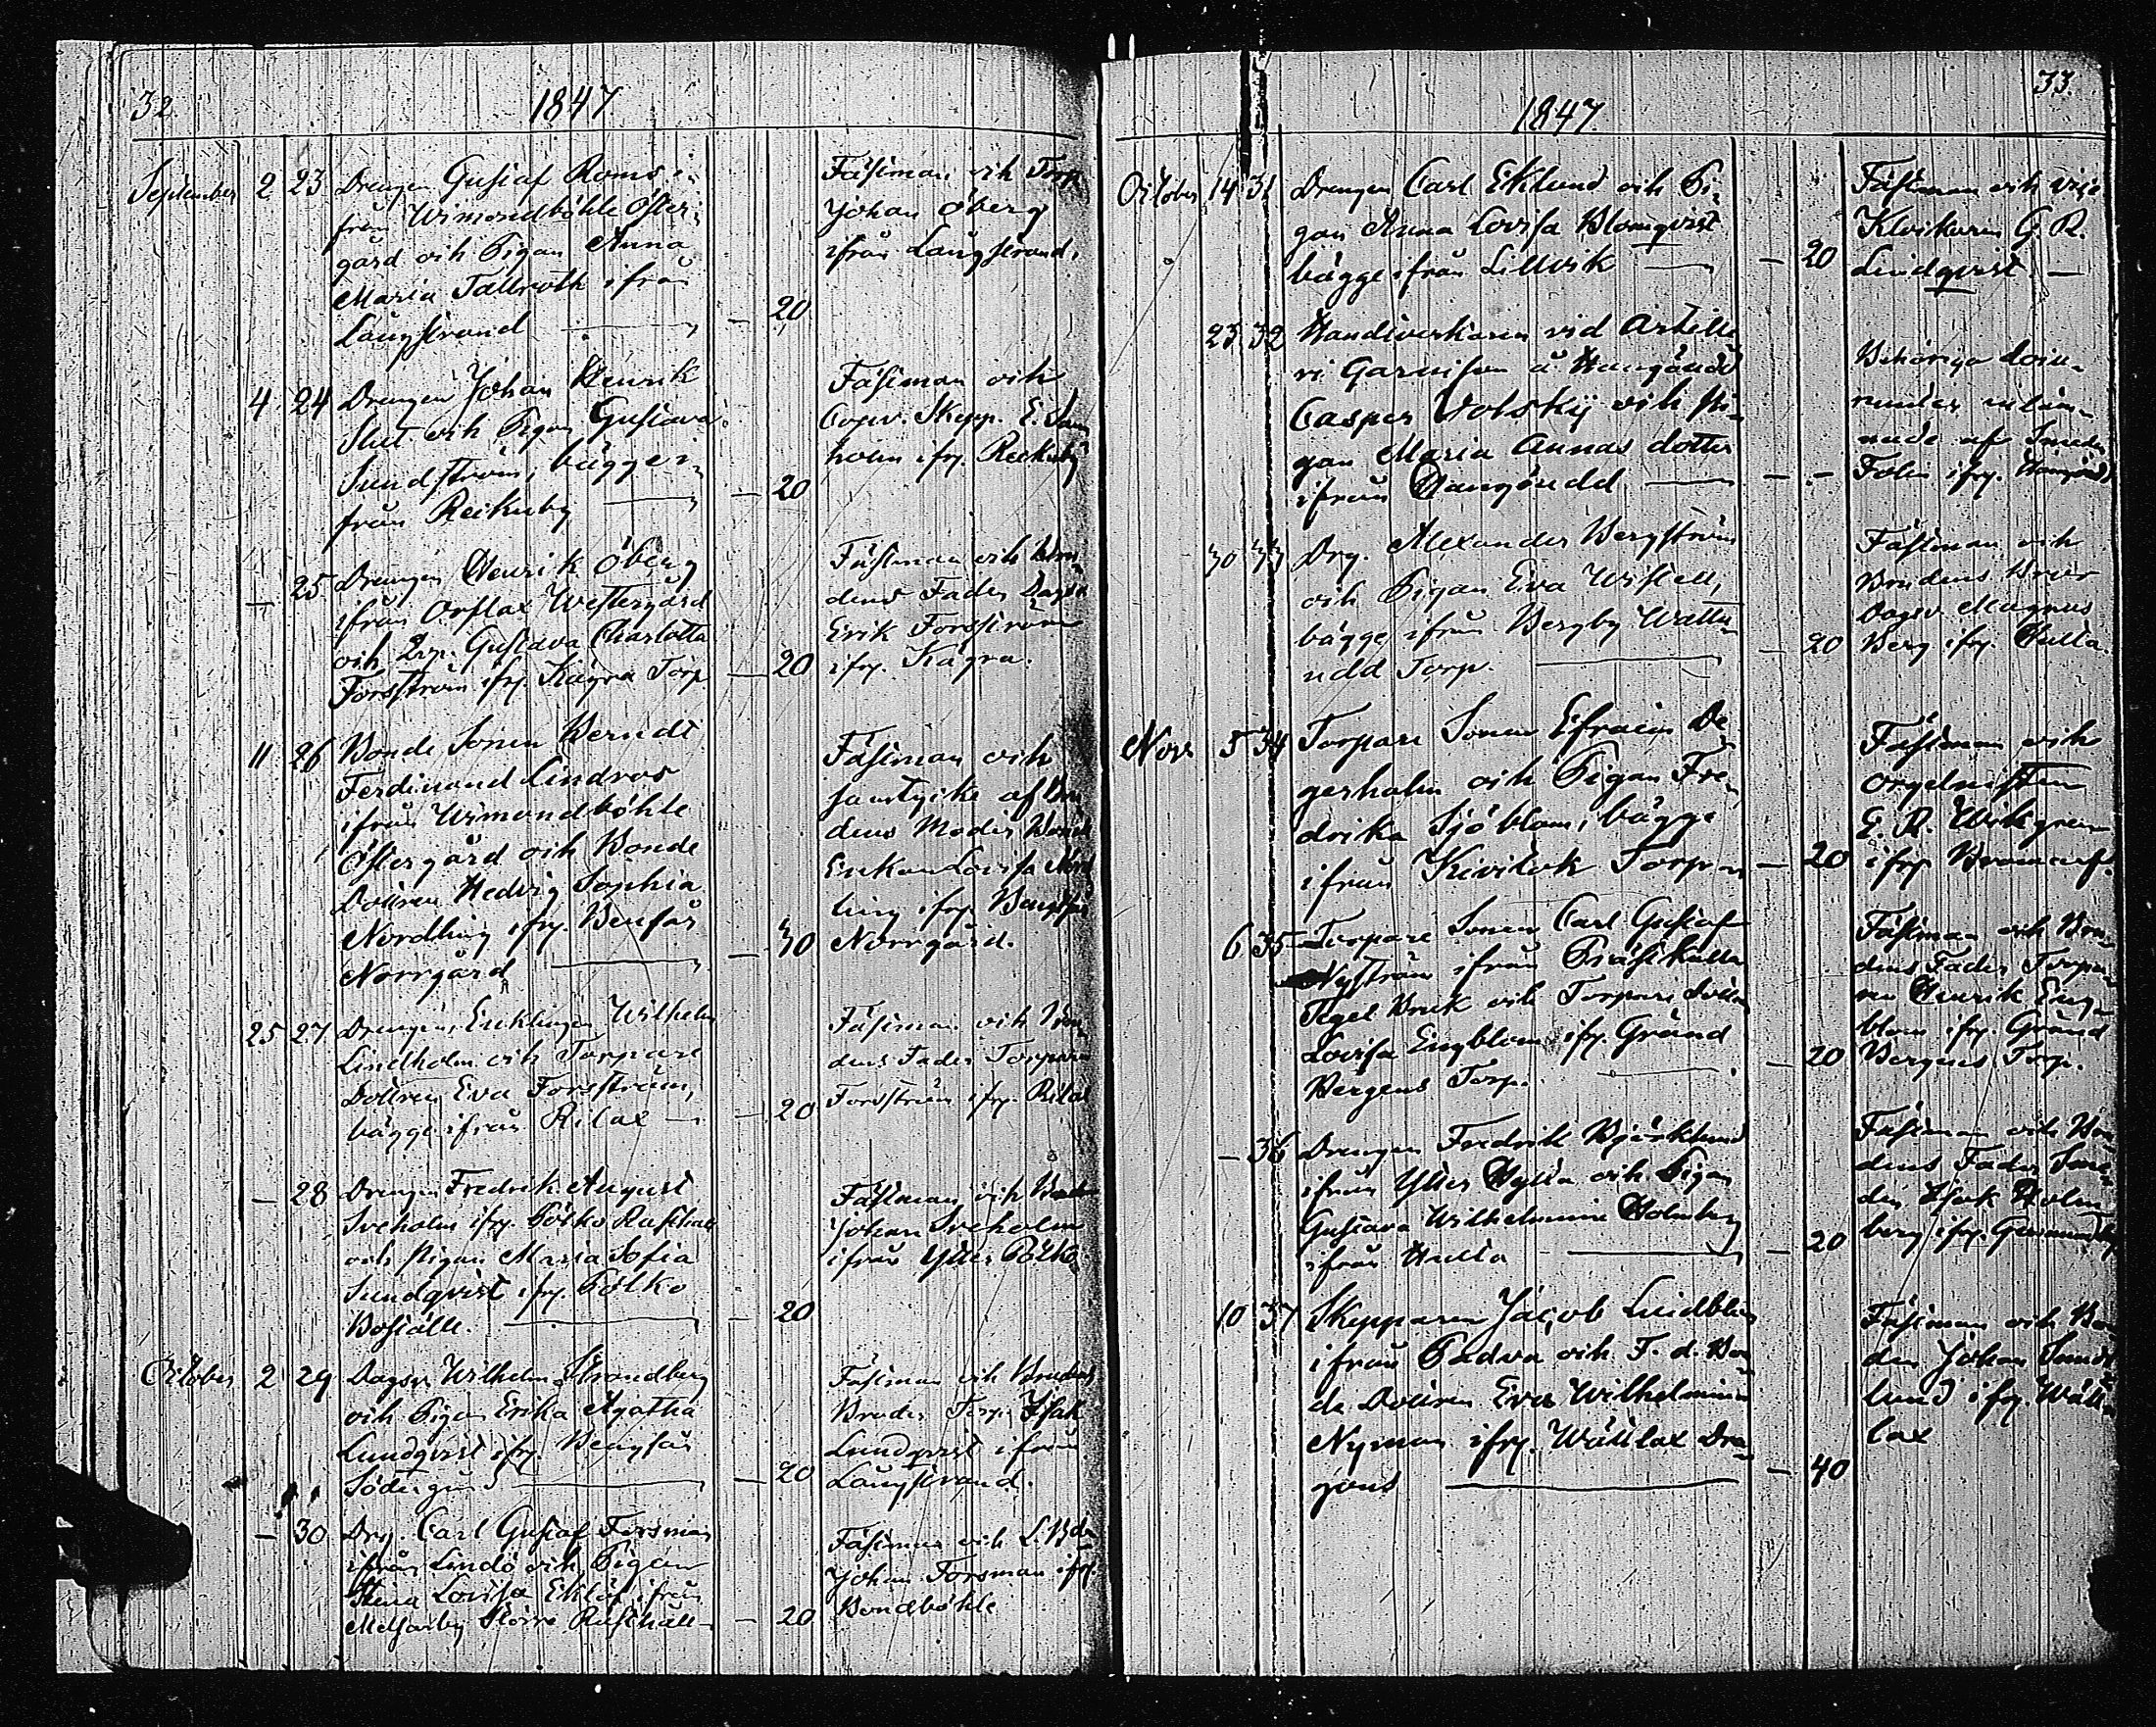 32
1847
September 2 23 Drengen Gustaf Roms i
från Wimondböhle Öster
gård och Pigan Anna
Maria Tallroth ifrån
Långstrand — 20
Fästman och Torp
Johan Öberg
ifrån Långstrand.
4 24 Drengen Johan Henrik
Slut och Pigan Gustava
Sundström, bägge i
från Reikuby — 20
Fästman och
Skepp. E.
holm ifr. Reikuby
— 25 Drengen Henrik Öberg
ifrån Orslax Westergård
och Gustava Charlotta
Forsström ifr. Kägra Torp — 20
Fästman och Bru
dens Fader
Erik Forsström
ifr. Kägra.
11 26 Bonde Sonen Berndt
Ferdinand Lindroos
ifrån Wimondböhle
Östergård och Bonde
Dottren Hedvig Sophia
Nordling ifr. Bensår
Norrgård — 30
Fästman och
samtycke af Bru
dens Moder
Enkan Lovisa Nord
ling ifr.
Norrgård.
25 27 Drengen, Enklingen Wilhelm
Lindholm och Torpare
Dottren Eva Forsström,
bägge ifrån Rilax — 20
Fästman och Bru
dens Fader Torparen
Forsström ifr. Rilax
— 28 Drengen Fredrik August
Sveholm ifr. Pölko Rusthåll
och Pigan Maria Sofia
Sundqvist ifr. Pölko
Boställe. — 20
Fästman och
Johan Sveholm
ifrån Ytter Pölko
October 2 29 Dagsv. Wilhelm Strandberg
och Pigan Erika Agatha
Lundqvist ifr. Bengsår
Södergård — 20
Fästman och Brudens
Broder Torp. Isak
Lundqvist ifrån
Långstrand.
— 30 Drg. Carl Gustaf Forsman
ifrån Lindö och Pigan
Stina Lovisa Eklöf ifrån
Melsarby Storre Rusthåll — 20
Fästman och
Johan Forsman ifr.
Bondböhle
33
1847
October 14 31 Drengen Carl Eklund och Pi-
gan Anna Lovisa Blomqvist
bägge ifrån Lillvik — 20
Fästman och vice
Klockaren G. R.
Lindqvist. —
23 32 Handtverkaren vid Artille
ri Garnison å Hangöudd
Casper Votskij och Pi-
gan Maria Annas dotter
ifrån Hangöudd — —
Behöriga docu-
menter inläm-
nade af
ifr. Hangöudd
30 33 Drg. Alexander Bergström
och Pigan Eva Wistell,
bägge ifrån Bergby
udd Torp. — 20
Fästman och
Brudens Bror
Dagsv. Magnus
Berg ifr. Hulta.
Nov. 5 34 Torpare Sonen Efraim De
gerholm och Pigan Fre-
drika Sjöblom, bägge
ifrån Kivitok Torp — 20
Fästman och
Orgelnisten
E. R. Wikgren
ifr. Bromarf.
6 35 Torpare Sonen Carl Gustaf
Nyström ifrån Prästkulla
Tegel Bruk och Torpare Dottren
Lovisa Engblom ifr. Gränd
Bergens Torp. — 20
Fästman och Bru-
dens Fader Torpa-
ren Henrik Eng-
blom ifr. Gränd
Bergens Torp.
— 36 Drengen Fredrik Björklund
ifrån Ytter Hylta och Pigan
Gustava Wilhelmina Holmberg
ifrån Hulta — 20
Fästman och Bru
dens Fader
Isak Holm
berg ifr.
10 37 Skepparen Jacob Lindblom
ifrån Padva och F. d. Bon-
de Dottren Eva Wilhelmina
Nyman ifr. Wättlax Dra-
gons — 40
Fästman och Bon
den Johan Sand
lund ifr. Wätt-
lax